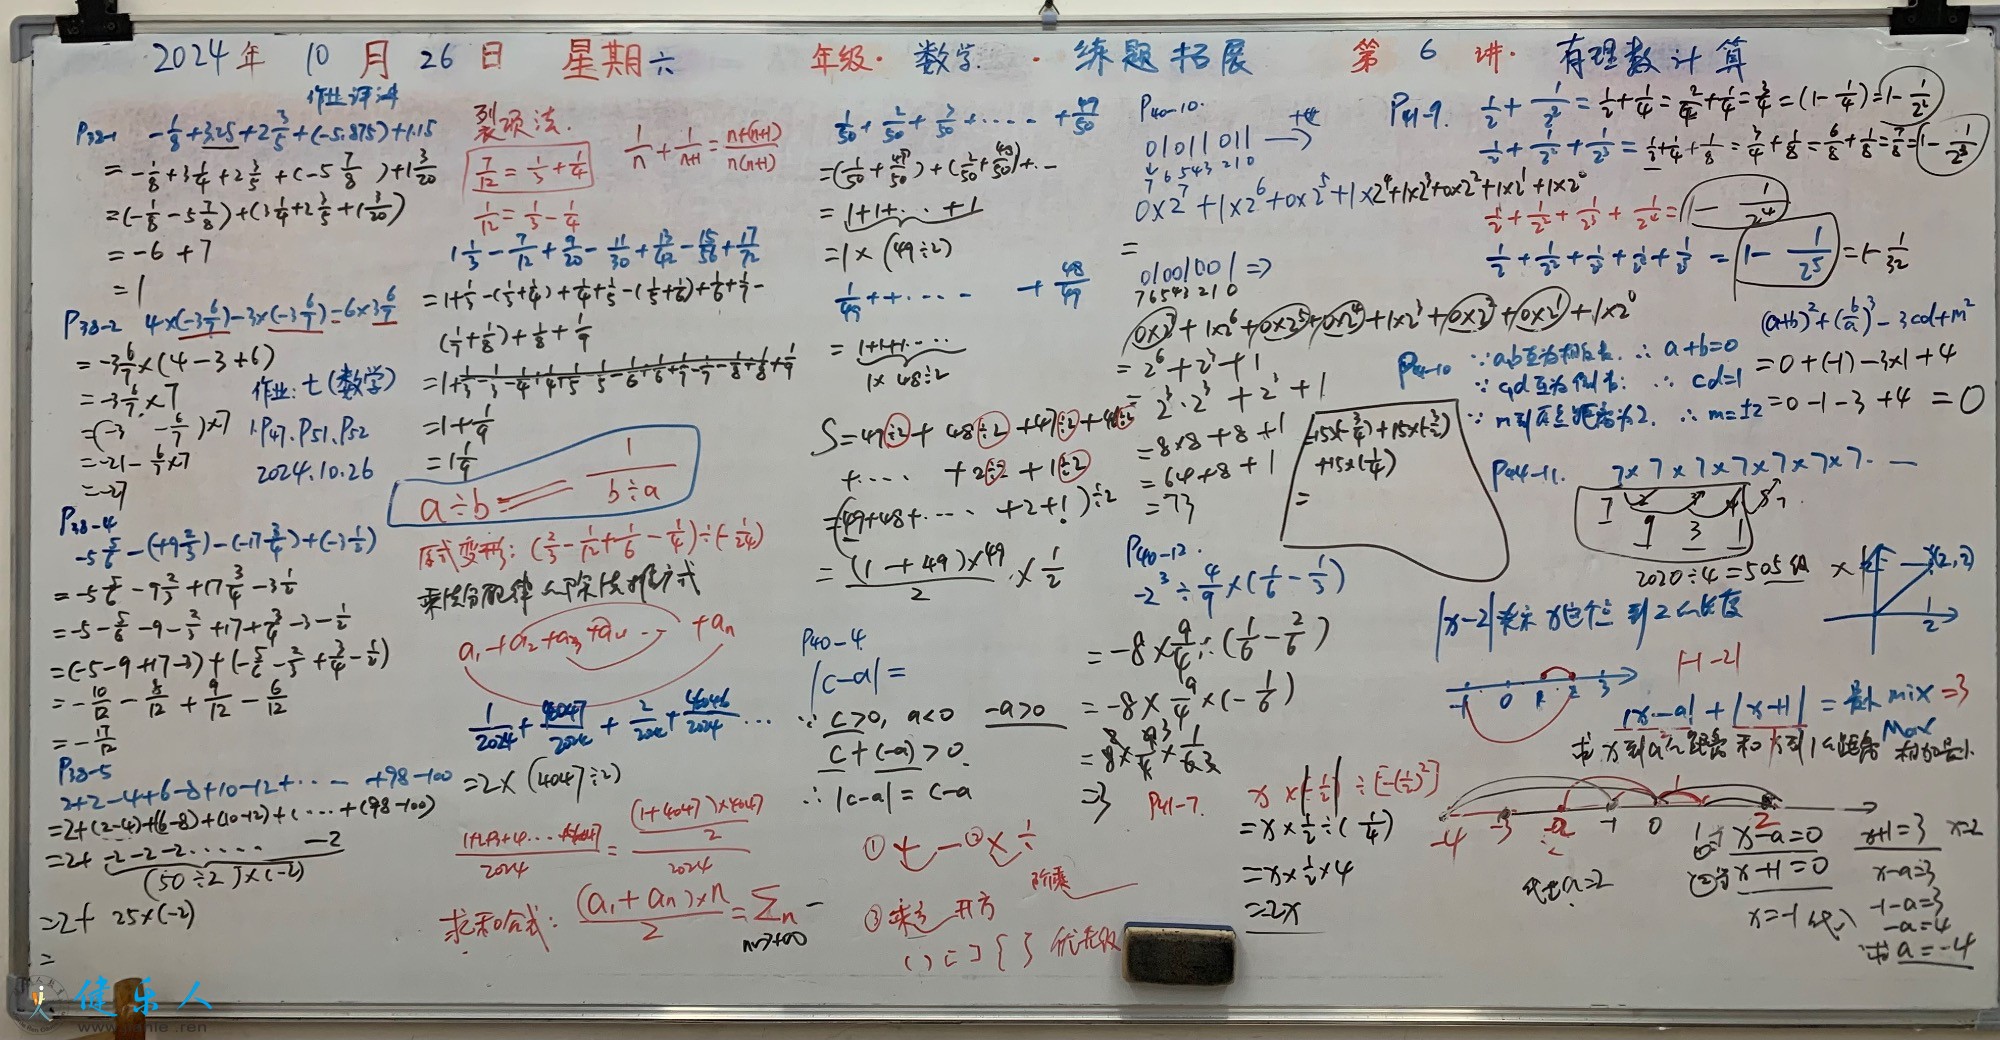 2024年 10月26日 星期六 年级·数学·练题拓展 第6讲·有理数计算
作业评讲
P38-1 -1/8+3.25+2 3/5+(-5.875)+1.15
=-1/8+3 1/4+2 3/5+(-5 7/8)+1 3/20
=(-1/8-5 7/8)+(3 1/4+2 3/5+1 3/20)
=-6+7
=1
P38-2 4×(-3 6/7)-3×(-3 6/7)-6×3 6/7
=-3 6/7×(4-3+6)
=-3 6/7×7
=(-3 -6/7)×7
=-21-6/7×7
=-27
作业:七(数学)
1.P47.P51.P52
2024.10.26
P38-4
-5 5/6-(+9 2/3)-(-17 3/4)+(-3 1/2)
=-5 5/6-9 2/3+17 3/4-3 1/2
=-5-5/6-9-2/3+17+3/4-3-1/2
=(-5-9+17-3)+(-5/6-2/3+3/4-1/2)
=-10/12-8/12+9/12-6/12
=-17/12
P38-5
2+2-4+6-8+10-12+······+98-100
=2+(2-4)+(6-8)+(10-12)+(····+(98-100)
=2+ -2-2-2······ -2
(50÷2)×(-2)
=2+ 25×(-2)
=
裂项法.
7/12=1/3+1/4
1/12=1/3-1/4
1/n+1/(n+1)=(n+(n+1))/(n(n+1))
1 1/3-7/12+9/20-11/30+13/42-15/56+17/72
=1+1/3-(1/3+1/4)+1/4+1/5-(1/5+1/6)+1/6+1/7-
(1/7+1/8)+1/8+1/9
=1+1/3-1/3-1/4+1/4+1/5-1/5-1/6+1/6+1/7-1/7-1/8+1/8+1/9
=1+1/9
=1 1/9
a÷b=1/(b÷a)
原式变形:(2/3-1/12+1/6-1/4)÷(-1/24)
a₁+a₂+a₃+a₄··· +aₙ
1/2024+4047/2024+2/2024+4046/2024···
=2×(4047÷2)
(1+2+3+4····+4047)/2024=((1+4047)×4047/2)/2024
求和公式:(a₁+aₙ)×n/2=Σn
n→+∞
1/50+2/50+3/50+·····+49/50
=(1/50+49/50)+(2/50+48/50)+··
=1+1+··+1
=1×(49÷2)
1/49++····· +48/49
=1+1+1····
1×48÷2
S=49÷2+48÷2+47÷2+46÷2
+···· +2÷2+1÷2
=(49+48+···· +2+1)÷2
=(1+49)×49/2×1/2
P40-4
|c-a|=
∵c>0, a<0 -a>0
c+(-a)>0
∴|c-a|=c-a
① + - ② × ÷
③ 乘方 开方
( ) [ ] { }
P40-10.
01011011→
7 6 5 4 3 2 1 0
0×2⁷+1×2⁶+0×2⁵+1×2⁴+1×2³+0×2²+1×2¹+1×2⁰
=
01001001⇒
7 6 5 4 3 2 1 0
0×2⁷+1×2⁶+0×2⁵+0×2⁴+1×2³+0×2²+0×2¹+1×2⁰
=2⁶+2³+1
=2³·2³+2³+1
=8×8+8+1
=64+8+1
=73
=15×(-3/4)+15×(-3/2)
+15×(1/4)
=
P40-12.
-2³÷4/9×(1/6-1/3)
=-8×9/4×(1/6-2/6)
=-8×9/4×(-1/6)
=8×9/4×1/6
=3
P41-7.
x×(-1/2)÷[-(1/2)²]
=x×1/2÷(1/4)
=x×1/2×4
=2x
P41-9. 1/2+1/2²=1/2+1/4=2/4+1/4=3/4=(1-1/4)=1-1/2²
1/2+1/2²+1/2³=1/2+1/4+1/8=3/4+1/8=6/8+1/8=7/8=1-1/2³
1/2+1/2²+1/2³+1/2⁴=1-1/2⁴
1/2+1/2²+1/2³+1/2⁴+1/2⁵=1-1/2⁵=1-1/32
(a+b)²+(b/a)³-3cd+m²
P44-10 ∵ab互为相反数.∴a+b=0
=0+(-1)-3×1+4
∵cd互为倒数:∴cd=1
=0-1-3+4=0
∵m到原点距离为2.∴m=±2
P44-11. 7×7×7×7×7×7×7·· —
7 9 3 1
2020÷4=505组
(2,2)
|x-2|表示x这个点到2的长度
|-1-2|
-1 0 1 2 3
|x-a|+|x+1|=最小 mix=3
Max
求x到a的距离和x到1的距离和为最小
-4 -3 -2 -1 0 1 2
x-a=0
x+1=0
x=-1代入
x+1=3 x=2
x-a=3
-1-a=3
-a=4
a=-4
代x a=2
健乐人